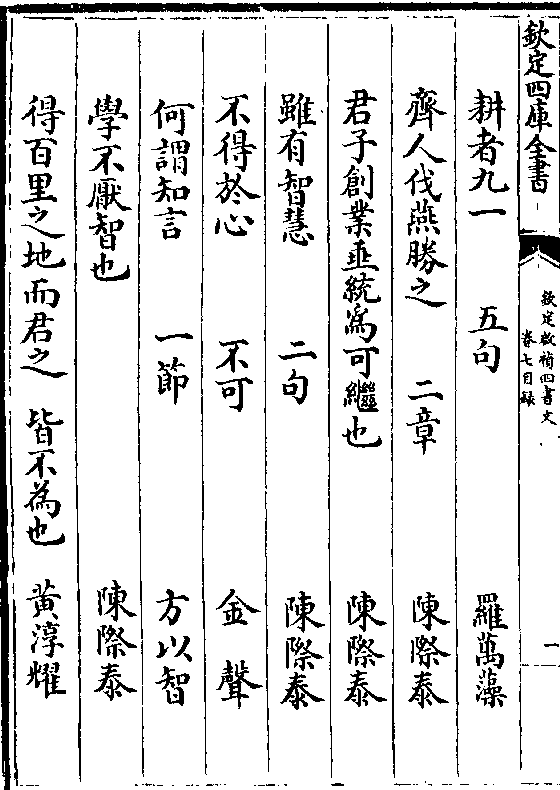 欽定四庫全書
欽定啟禎四書文
卷七目録
一
耕者九一 五句 羅萬藻
齊人伐燕勝之 二章 陳際泰
君子創業垂統為可繼也 陳際泰
雖有智慧 二句 陳際泰
不得於心 不可 金聲
何謂知言 一節 方以智
學不厭智也 陳際泰
得百里之地而君之 皆不為也 黄淳耀